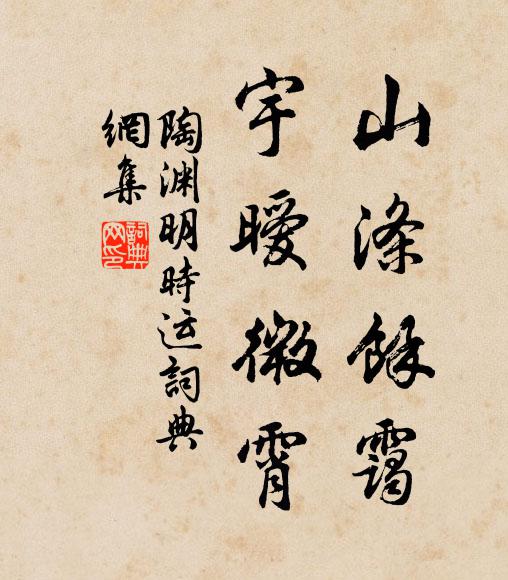 山滌餘靄
宇曖微霄
陶渊明時运詞典
網集
詞典
网印